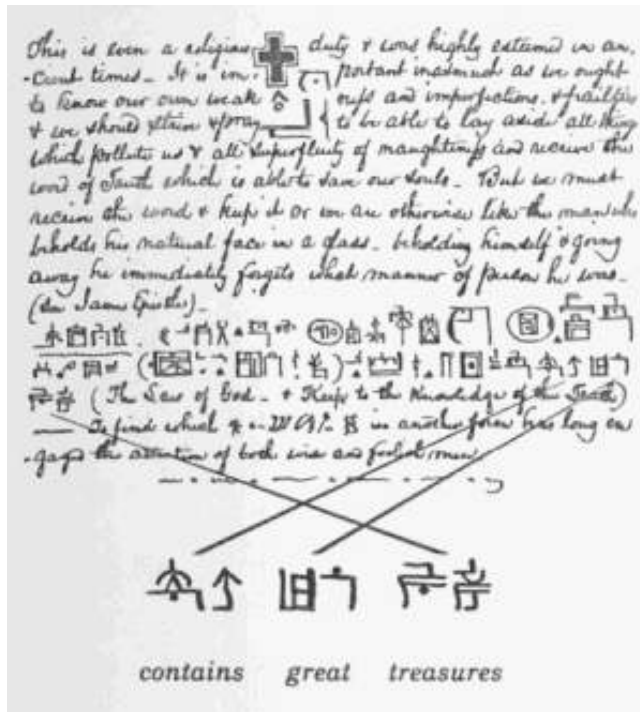 This is even a religious duty & was highly esteemed in an.
-cient times_ It is im. portant inasmuch as we ought
to know our own weak and imperfections. & frailties
& we should strive & pray to be able to lay aside all things
which pollute us & all superfluity of naughtiness and receive the
word of Truth which is able to save our souls_ But we must
receive the word & keep it or we are otherwise like the man who
beholds his natural face in a glass_ beholding himself & going
away he immediately forgets what manner of person he was_
(In James Epistle)_
(The Law of God_ & Keep to the Knowledge of the Truth)
To find which in another form has long en
-gaged the attention of both wise and foolish men
contains great treasures